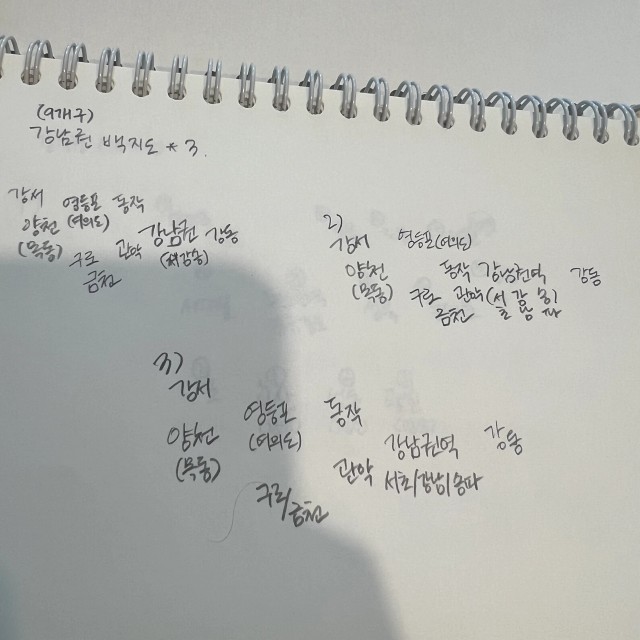 (9개구)
강남권 백지도 * 3.
강서 영등포 동작
양천 (여의도) 강남권 강동
(목동) 구로 관악
금천
2)
강서 영등포(여의도)
양천 동작 강남권역 강동
(목동) 구로 관악 (서 강 송)
금천 초 남 파
3)
강서
영등포 동작
양천 (여의도) 강남권역 강동
(목동) 관악 서초/강남/송파
구로/금천